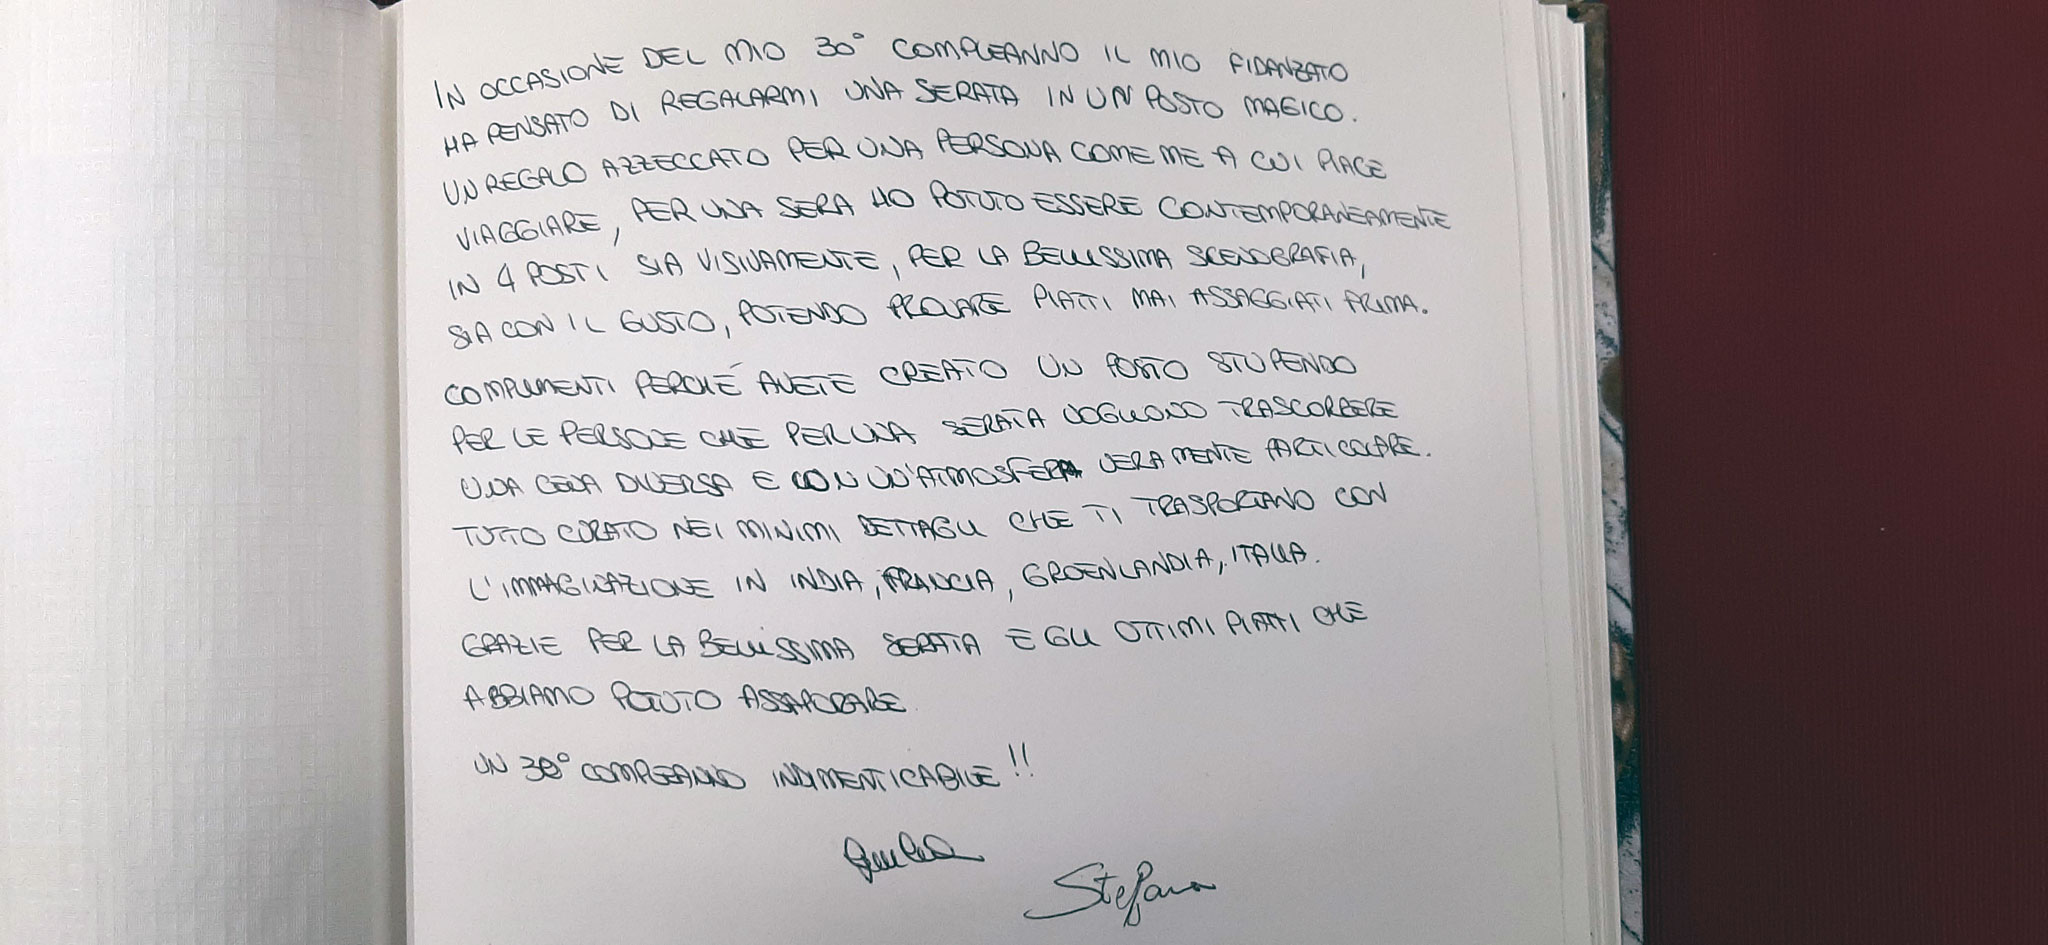 IN OCCASIONE DEL MIO 30° COMPLEANNO IL MIO FIDANZATO
HA PENSATO DI REGALARMI UNA SERATA IN UN POSTO MAGICO.
UN REGALO AZZECCATO PER UNA PERSONA COME ME A CUI PIACE
VIAGGIARE, PER UNA SERA HO POTUTO ESSERE CONTEMPORANEAMENTE
IN 4 POSTI SIA VISIVAMENTE, PER LA BELLISSIMA SCENOGRAFIA,
SIA CON IL GUSTO, POTENDO PROVARE PIATTI MAI ASSAGGIATI PRIMA.
COMPLIMENTI PERCHÉ AVETE CREATO UN POSTO STUPENDO
PER LE PERSONE CHE PER UNA SERATA VOGLIONO TRASCORRERE
UNA CENA DIVERSA E CON UN'ATMOSFERA VERAMENTE PARTICOLARE.
TUTTO CURATO NEI MINIMI DETTAGLI CHE TI TRASPORTANO CON
L'IMMAGINAZIONE IN INDIA, FRANCIA, GROENLANDIA, ITALIA.
GRAZIE PER LA BELLISSIMA SERATA E GLI OTTIMI PIATTI CHE
ABBIAMO POTUTO ASSAPORARE.
UN 30° COMPLEANNO INDIMENTICABILE!!
Stefano